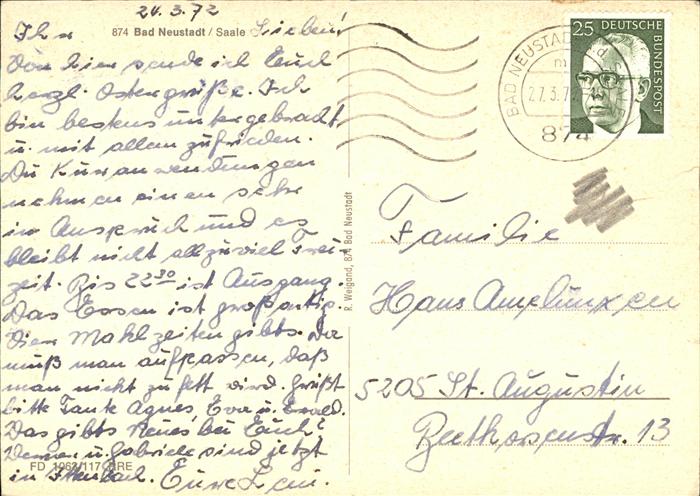 24.3.72
874 Bad Neustadt / Saale
Ihr Lieben!
Von hier sende ich Euch
herzl. Ostergrüße. Ich
bin bestens untergebracht
u. mit allem zufrieden.
Die Kuranwendungen
nehmen einen sehr
in Anspruch und es
bleibt nicht allzuviel Frei-
zeit. Bis 22³⁰ ist Ausgang.
Das Essen ist großartig.
Vier Mahlzeiten gibts. Da
muß man aufpassen, daß
man nicht zu fett wird. Grüßt
bitte Tante Agnes, Eva u. Ewald.
Was gibts Neues bei Euch?
Werner u. Gabriele sind jetzt
in Ittenbach. Eure Leni.
FD 1063/117 HRE
R. Weigand, 874 Bad Neustadt
BAD NEUSTADT
27.3.72
874
25 DEUTSCHE BUNDESPOST
Familie
Hans Amelunxen
5205 St. Augustin
Beethovenstr. 13